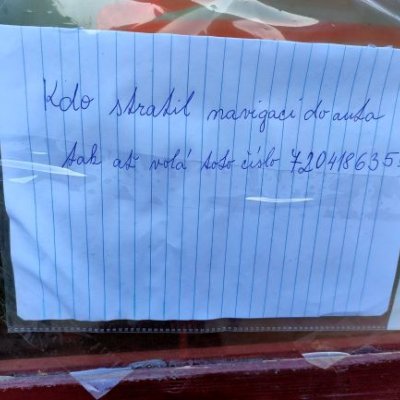 Kdo stratil navigací do auta
tak ať volá toto číslo 720418635.